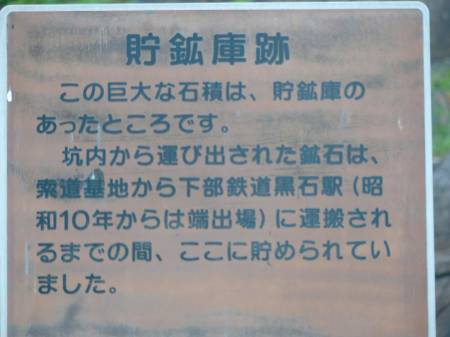 貯鉱庫跡
この巨大な石積は、貯鉱庫の
あったところです。
坑内から運び出された鉱石は、
索道基地から下部鉄道黒石駅（昭
和10年からは端出場）に運搬され
るまでの間、ここに貯められてい
ました。